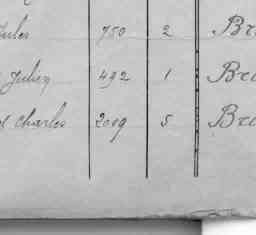 Jules 750 2 Br
Julien 492 1 Bra
Charles 2009 5 Bra